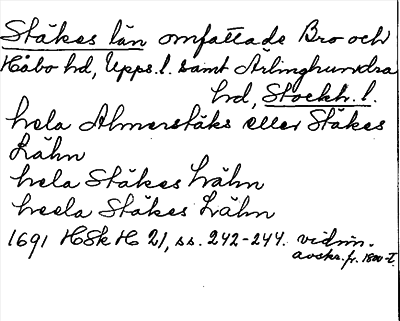 Stäkes län omfattade Bro och
Håbo hd, Upps. l. samt Ärlinghundra
hd, Stockh. l.
hela Almerstäks eller Stäkes
Lähn
hela Stäkes Lähn
heela Stäkes Lähn
1691 HSk H 21, ss. 242-244. vidim.
avskr. fr. 1800-t.